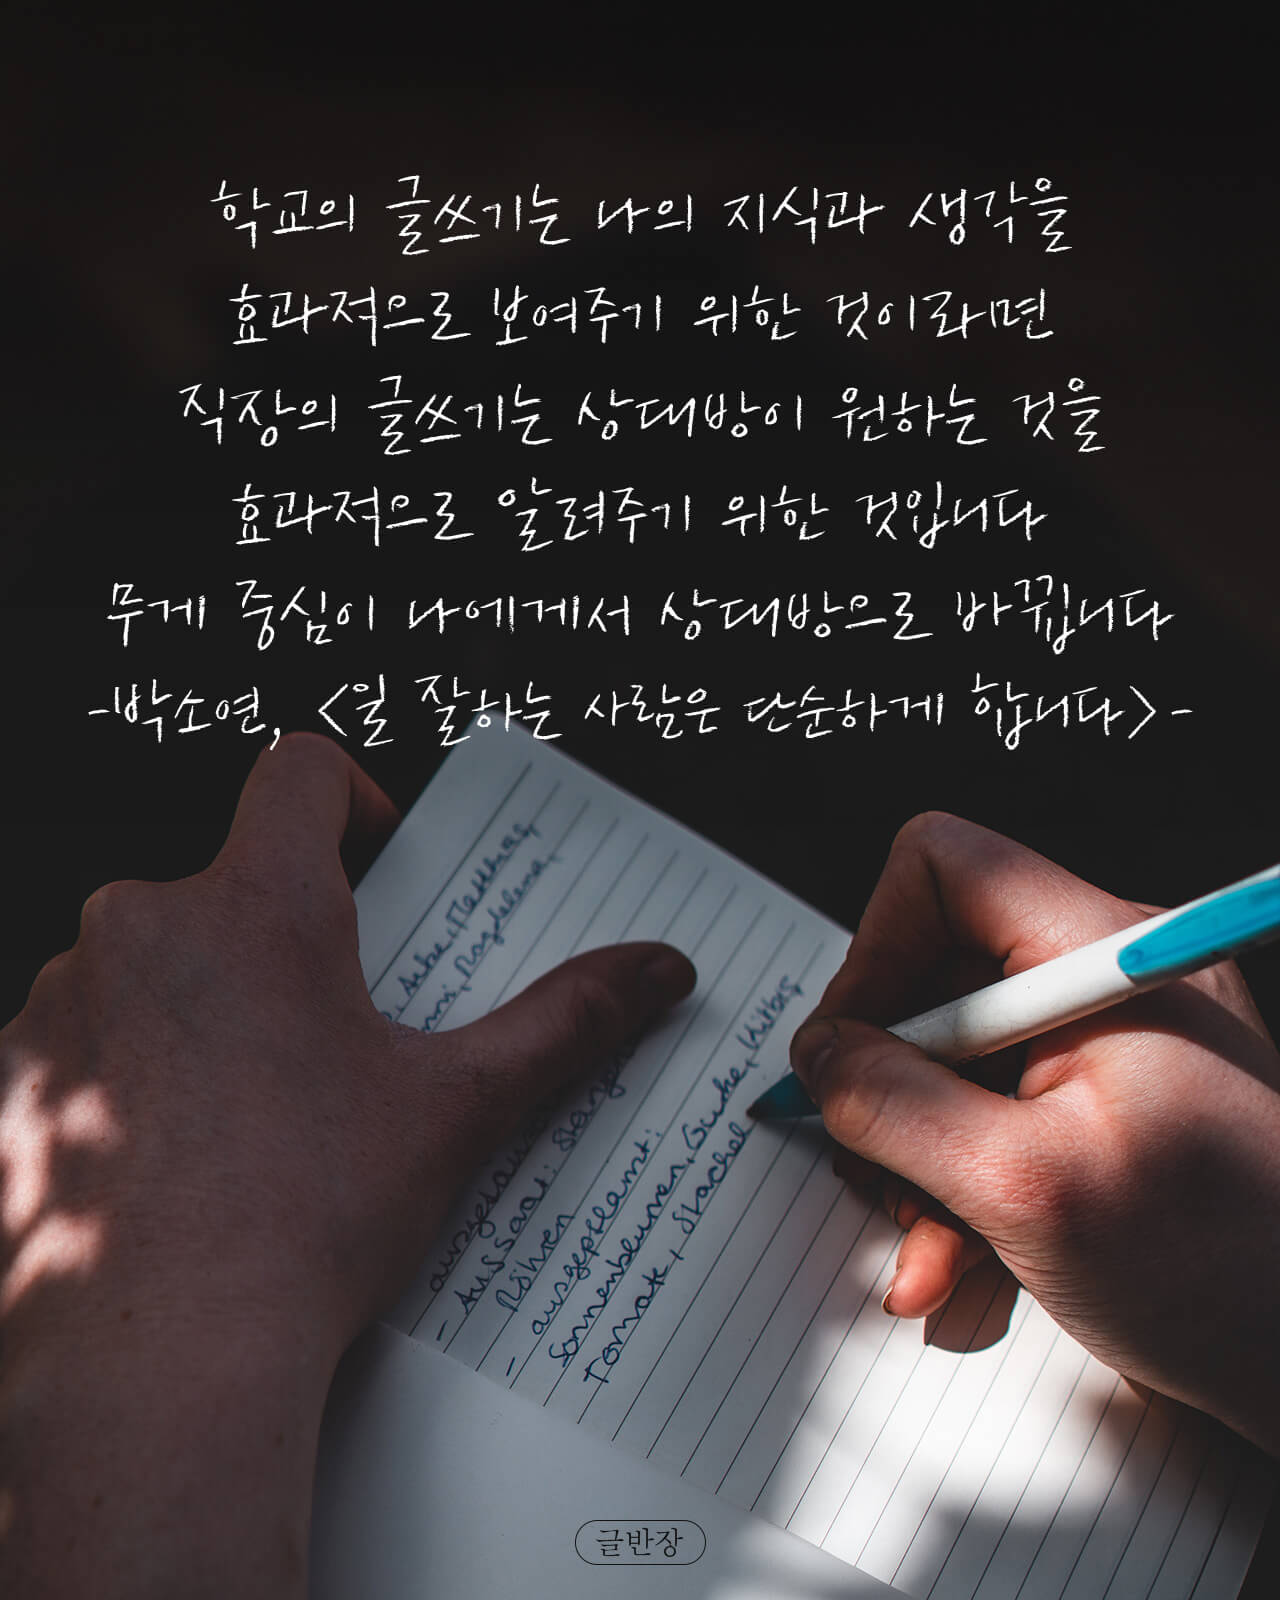 학교의 글쓰기는 나의 지식과 생각을
효과적으로 보여주기 위한 것이라면
직장의 글쓰기는 상대방이 원하는 것을
효과적으로 알려주기 위한 것입니다
무게 중심이 나에게서 상대방으로 바뀝니다
-박소연, <일 잘하는 사람은 단순하게 합니다>-
Magdalena,
- Aussaat: Stangen
Röhren
- ausgepflanzt:
Sonnenblumen, Gurke, Kürbis,
Tomate, Stachel
글반장